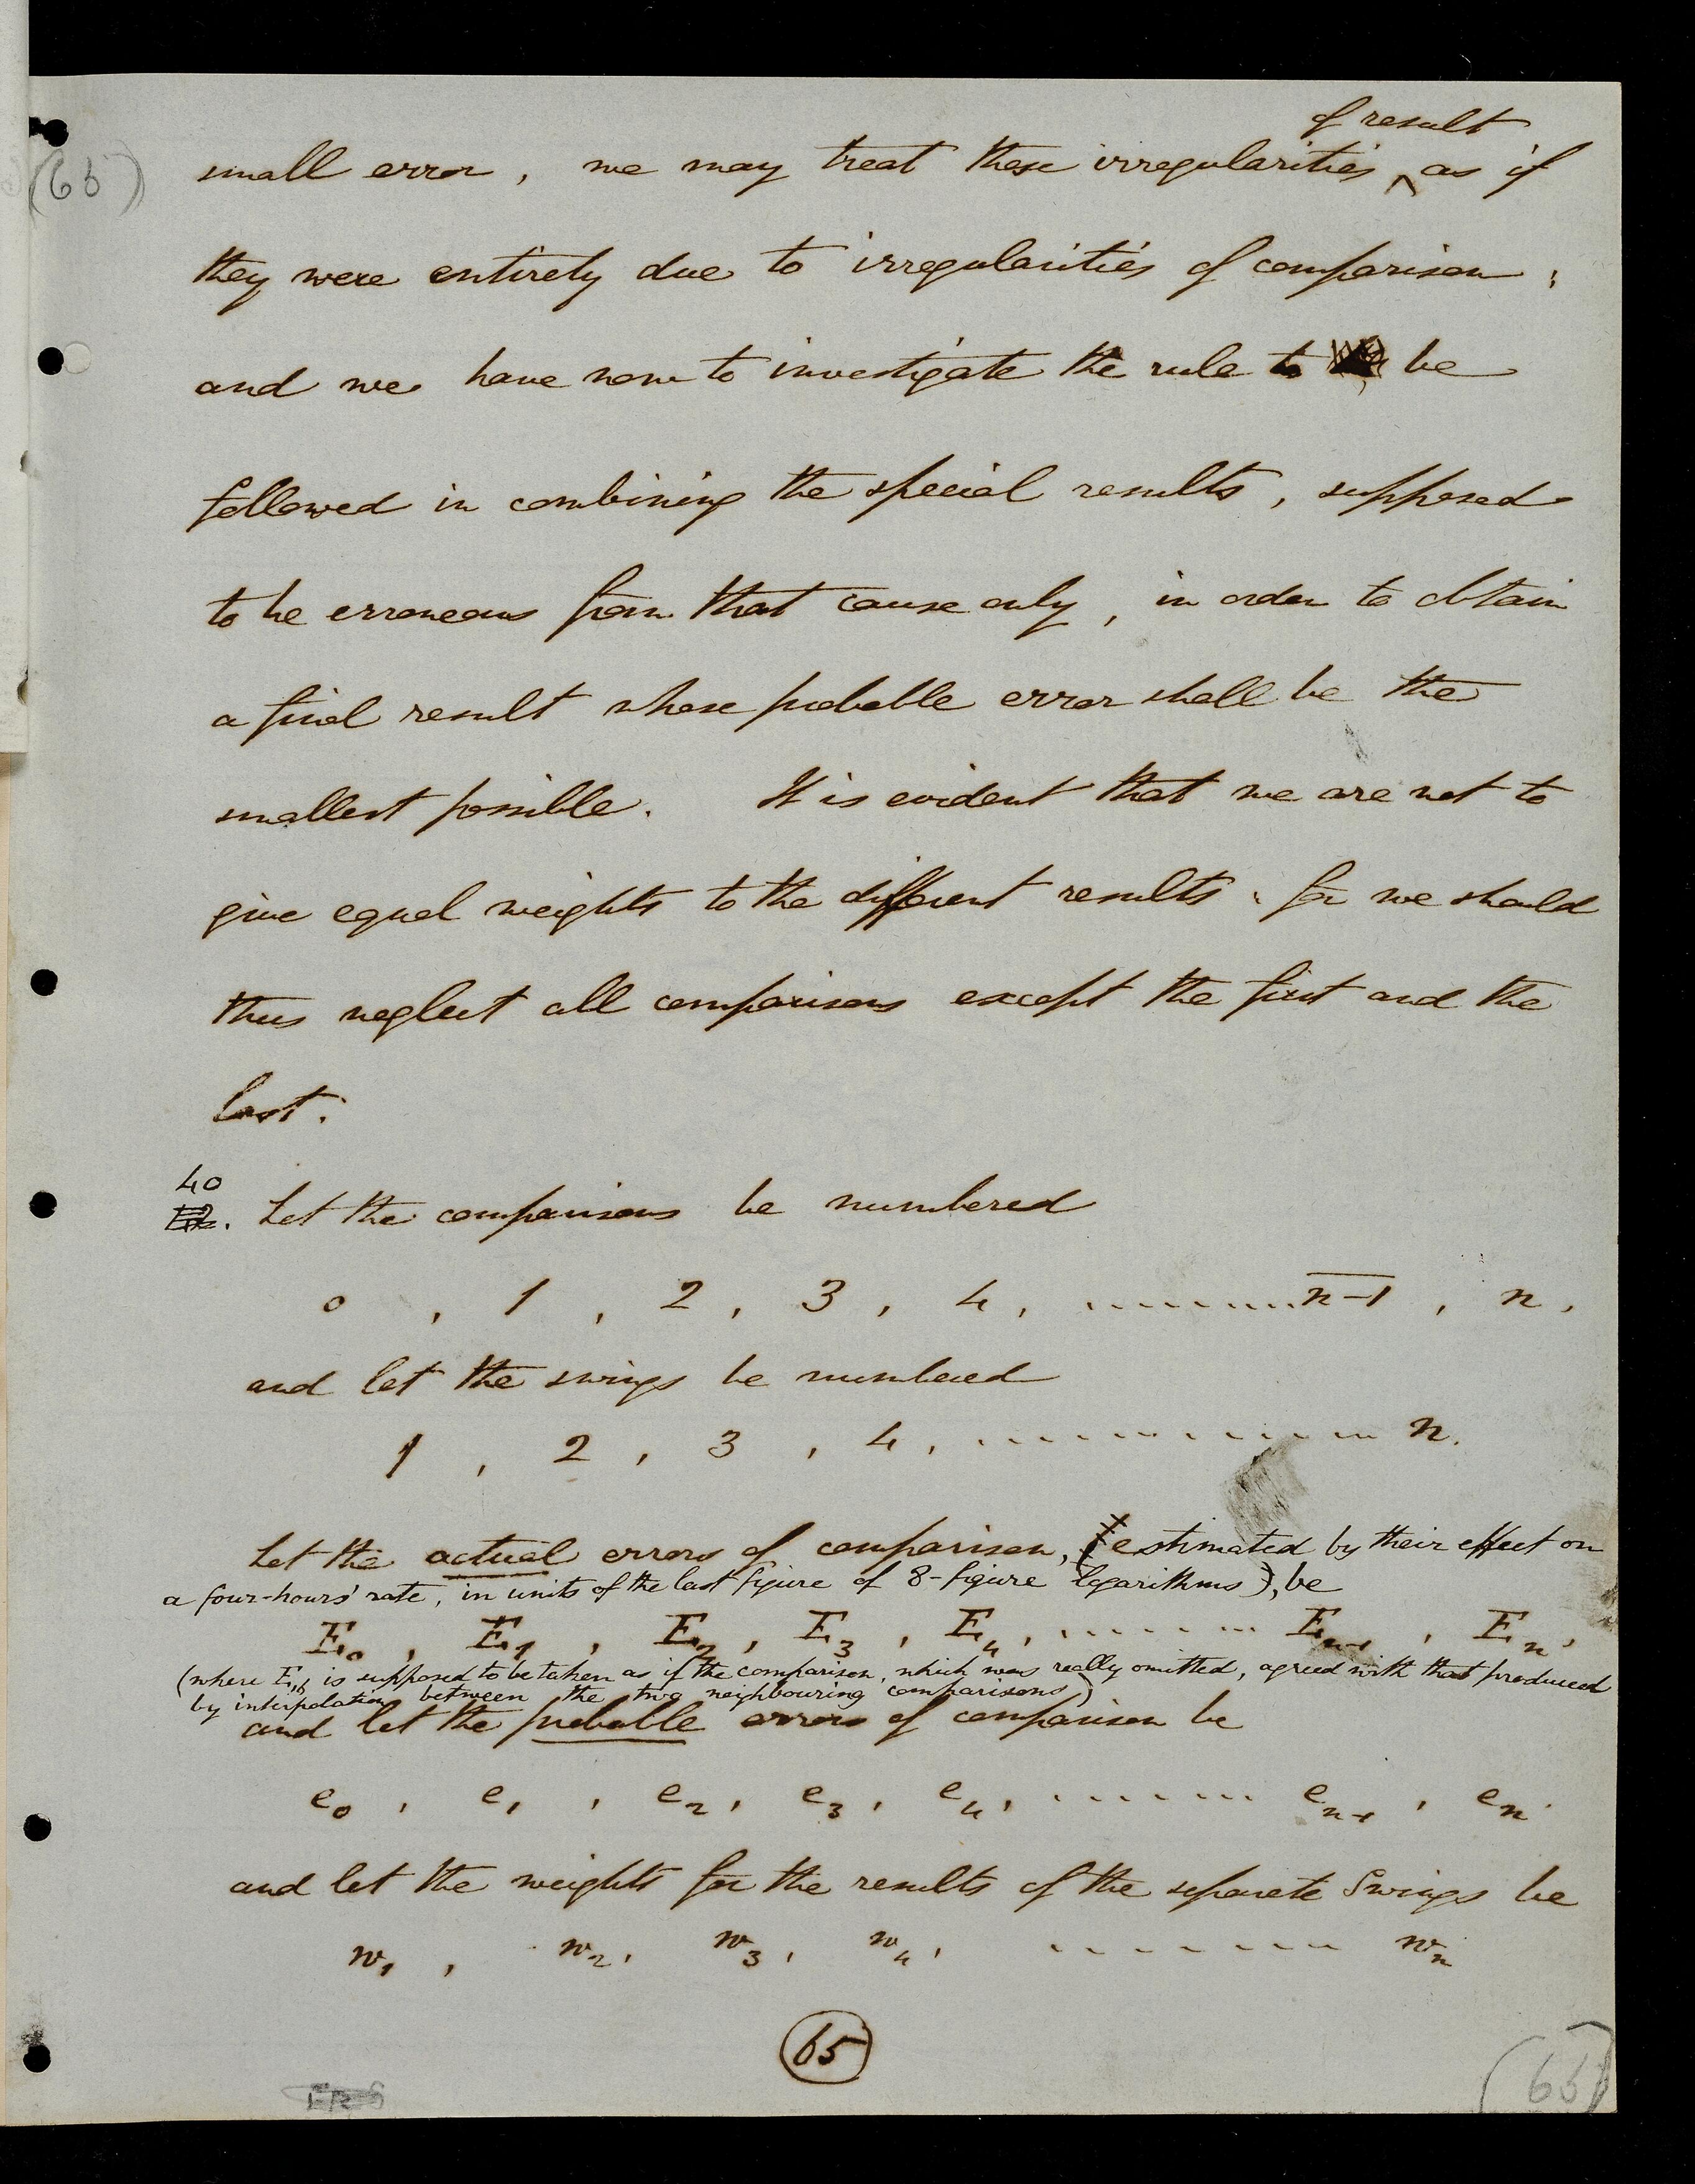 of result
(65)
small error, we may treat these irregularities ^ as if
they were entirely due to irregularities of comparison;
and we have now to investigate the rule to be
followed in combining the special results, supposed
to be erroneous from that cause only, in order to obtain
a final result whose probable error shall be the
smallest possible. It is evident that we are not to
give equal weights to the different results: for we should
thus neglect all comparisons except the first and the
last.
40
Let the comparisons be numbered
0, 1, 2, 3, 4, ......... n-1, n,
and let the swings be numbered
1, 2, 3, 4, ............. n.
Let the actual errors of comparison, (estimated by their effect on
a four-hours' rate, in units of the last figure of 8-figure logarithms), be
E0, E1, E2, E3, E4, ........ En-1, En,
(where E16 is supposed to be taken as if the comparison, which was really omitted, agreed with that produced
by interpolation between the two neighbouring comparisons)
and let the probable errors of comparison be
e0, e1, e2, e3, e4, ....... en-1, en.
and let the weights for the results of the separate Swings be
w1, w2, w3, w4, ........ wn
65
(65)